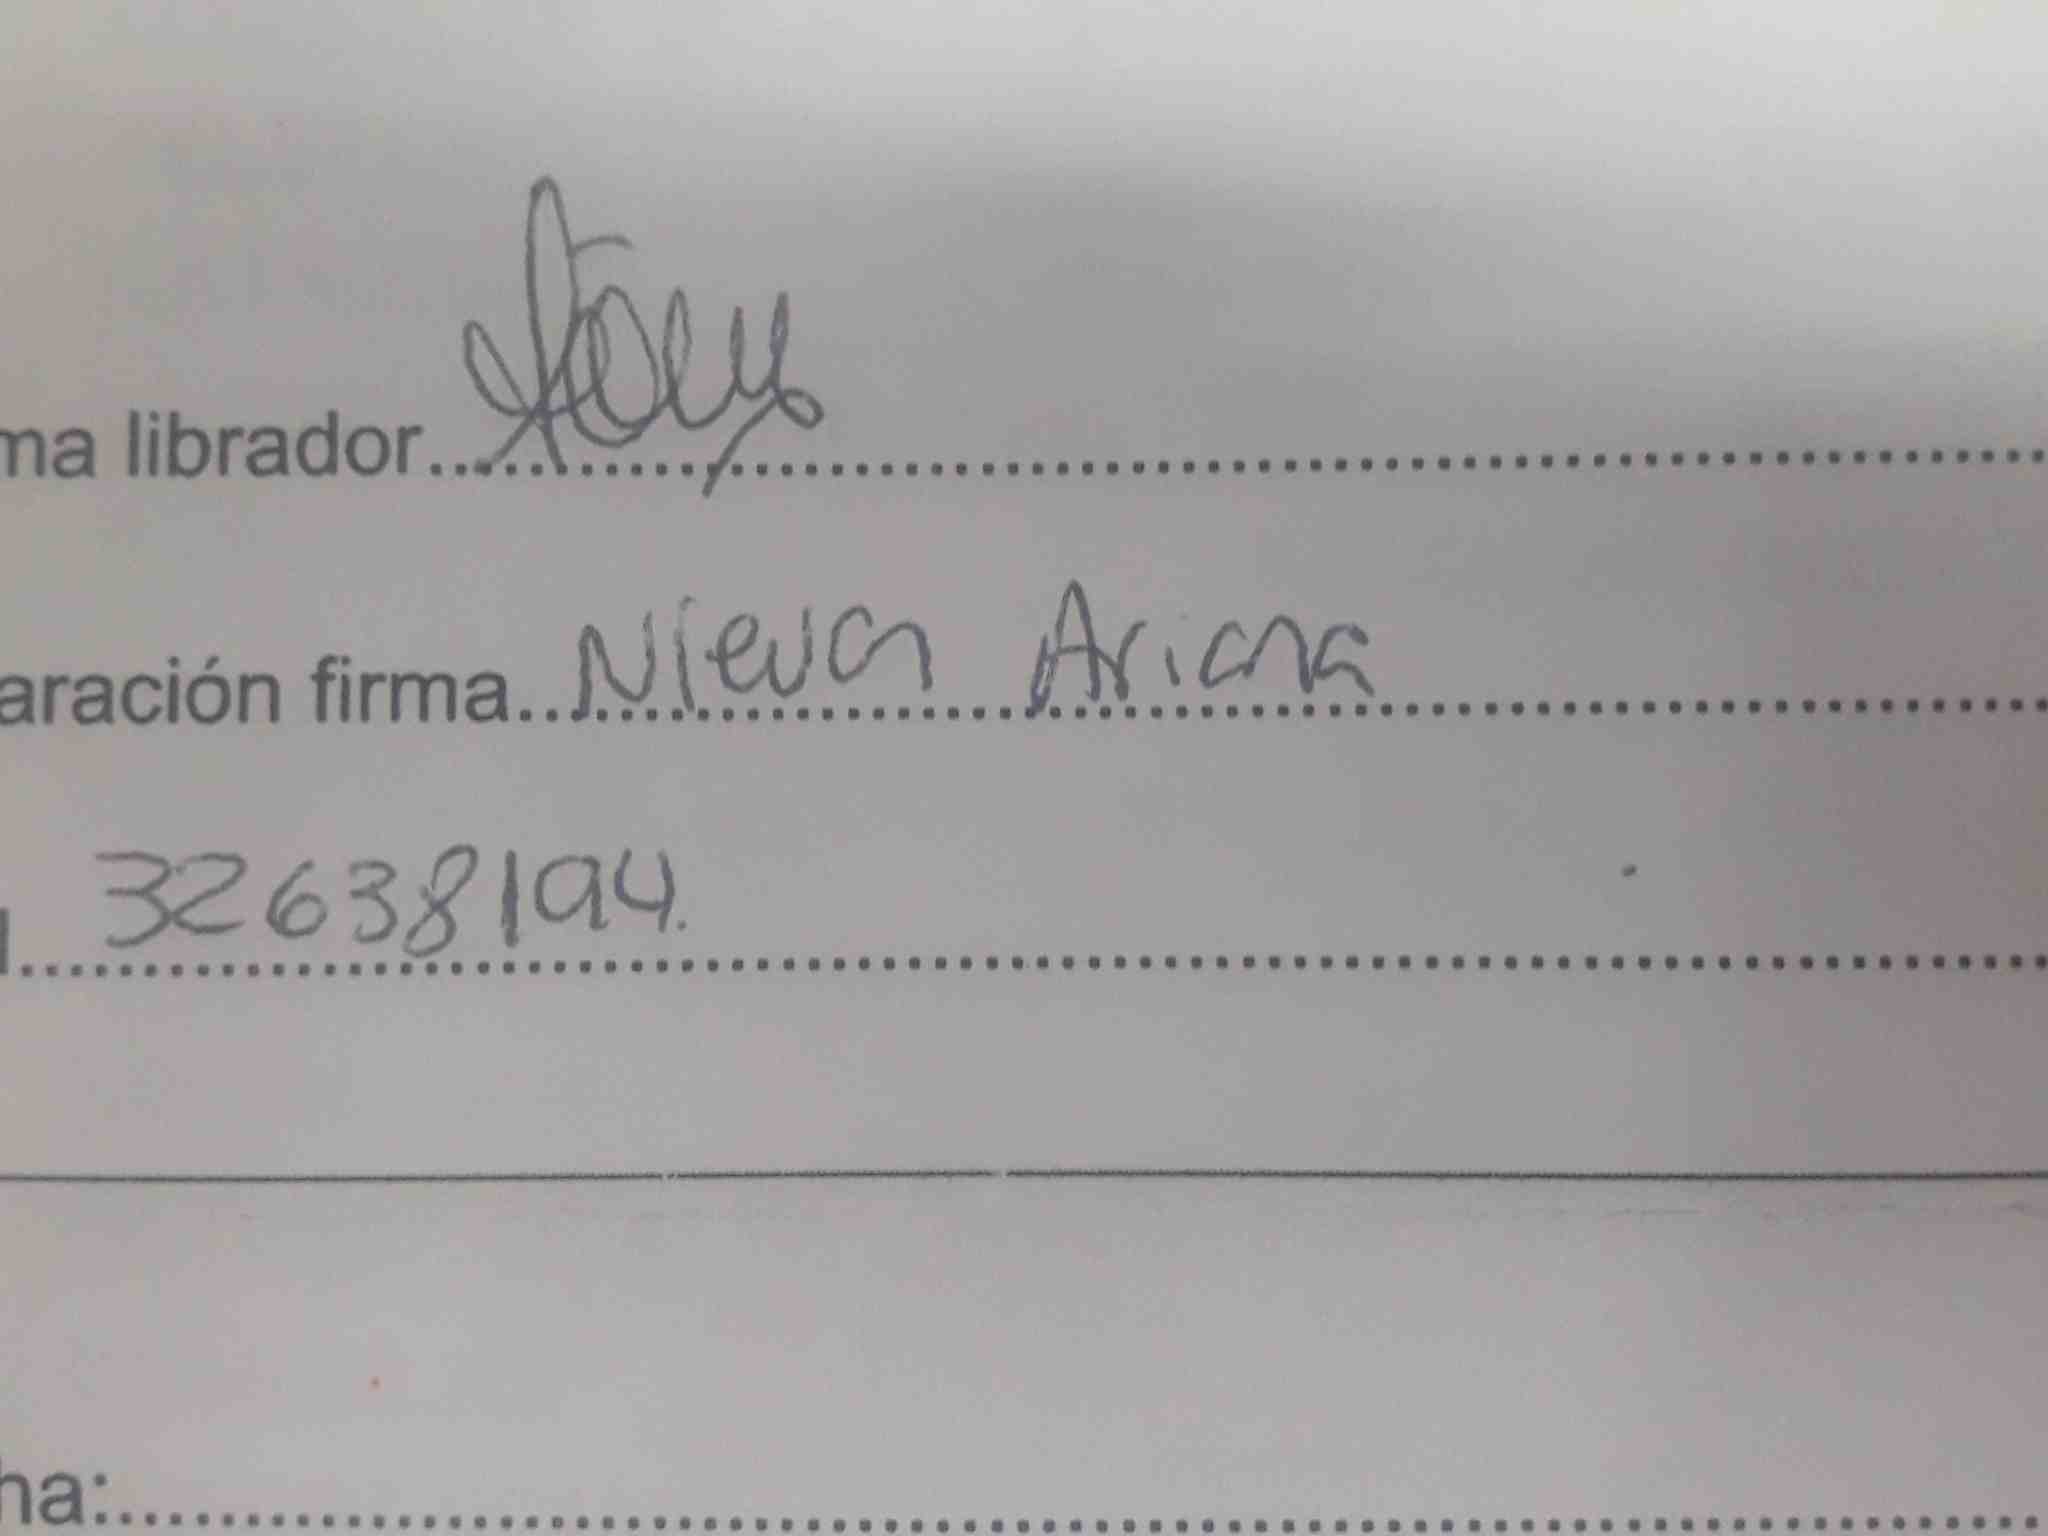 ma librador..........
aración firma.. Nieva Ariana
l.. 32638194.
ha:..........